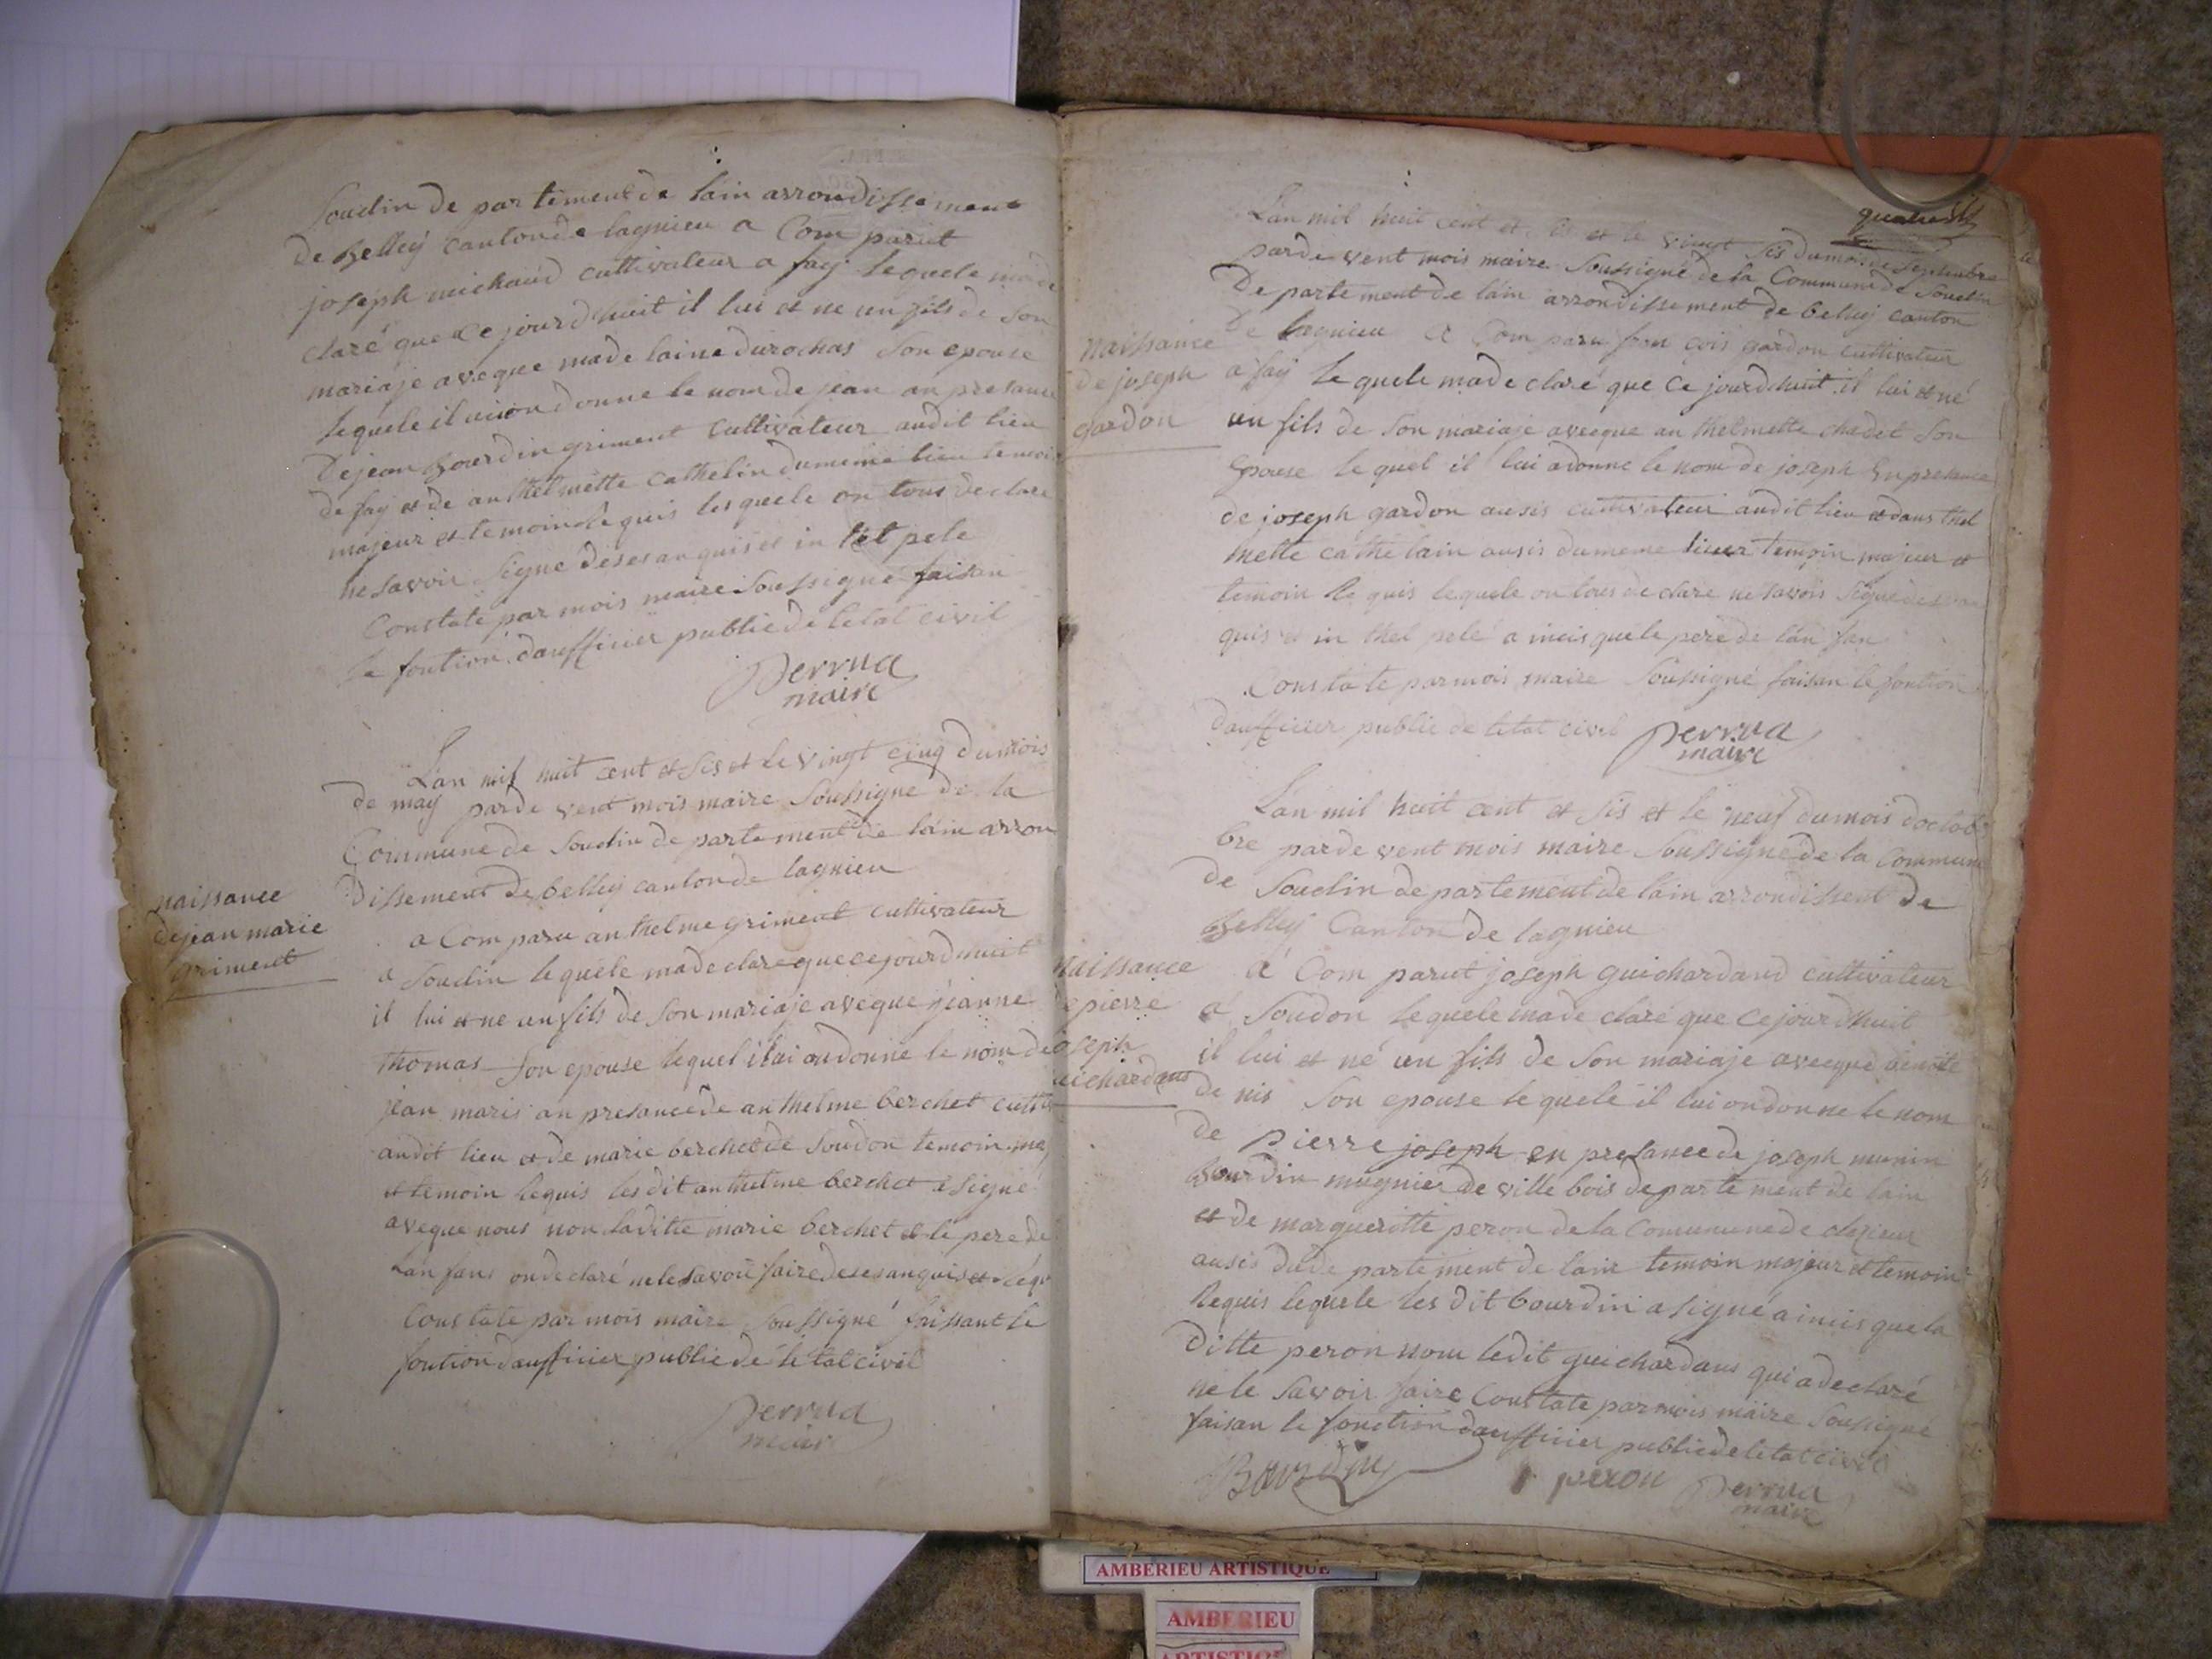 Souclin de partement de lain arrondissement
de Belley canton de lagnieu a Com parut
joseph michaud cultivateur a fay lequele made
claré que ce jourdhuit il lui et ne un fils de Son
mariaje aveque made laine durochas Son epouse
lequele il lui on donne le nom de jean an presance
De jean Bourdin griment Cultivateur audit lieu
de fay et de anthelmette Cathelin du meme lieu temoin
majeur et temoin Requis lesquele on tous declare
ne savoir Signe deses anquis et in tel pele
Constate par mois maire Soussigné faisan
le fontion daufficier public de letat civil
Perrua
maire
L'an mil huit cent et sis et le vingt cinq du mois
de may parde vent mois maire Soussigne de la
Commune de Souclin de parte ment de lain arron
dissement de belley canton de lagnieu
naissance
de jean marie
griment
a Com paru an thelme griment cultivateur
a Souclin lequele made clare que ce jourdhuit
il lui et ne un fils de Son mariaje aveque jeanne
thomas Son epouse lequel il lui on donne le nom de
jean marie an presance de anthelme berchet cultiv
audit lieu et de marie berchet de Soudon temoin maj
et temoin Requis les dit anthelme berchet a signé
aveque nous non laditte marie berchet et le pere de
Lan fans on declaré ne le Savoir faire de ses anquis et
Constate par mois maire Soussigné faissant le
fontion daufficier public de le tat civil
Perrua
maire
Lan mil huit cent et sis et le vingt sis du mois de Septembre
parde vent mois maire Soussigné de la Commune de Souclin
De parte ment de lain arrondisse ment de belley canton
De lagnieu a Com paru fran cois gardon cultivateur
naissance
de joseph
gardon
a fay le quele made claré que ce jourdhuit il lui et né
un fils de Son mariaje avecque an thelmette chadet Son
Epouse le quel il lui a donne le nom de joseph En presance
de joseph gardon ausis cultivateur audit lieu et dans thel
mette cathe lain ausis du meme lieu temoin majeur et
temoin Re quis lequele on tous de clare ne savois Signe deses an
quis et in thel pelé a incis que le pere de lan fan
Constate par mois maire Soussigné faisan le fontion
daufficier public de letat civil Perrua
maire
Lan mil huit cent et sis et le neuf du mois doctob
bre parde vent mois maire Soussigné de la Commune
de Souclin de partement de lain arrondissent de
Belley Canton de lagnieu
naissance
de pierre
joseph
guichardans
a Com parut joseph guichardand cultivateur
a Soudon lequele made claré que ce jourdhuit
il lui et né un fils de Son mariaje avecque benoite
de nis Son epouse le quele il lui on donne le nom
de pierre joseph en presance de joseph munin
bourdin mugnier de ville bois departe ment de lain
et de margueritte peron de la Comunune de
ausis du de partement de lain temoin majeur et temoin
Requis lequele les dit bourdin a signé a incis que la
ditte peron nom ledit guichardans qui a declaré
ne le Savoir faire Constate par mois maire Soussigne
faisan le fonction daufficier public de letat civil
Bourdin peron Perrua
maire
AMBERIEU ARTISTIQUE
AMBERIEU
ARTISTIQUE